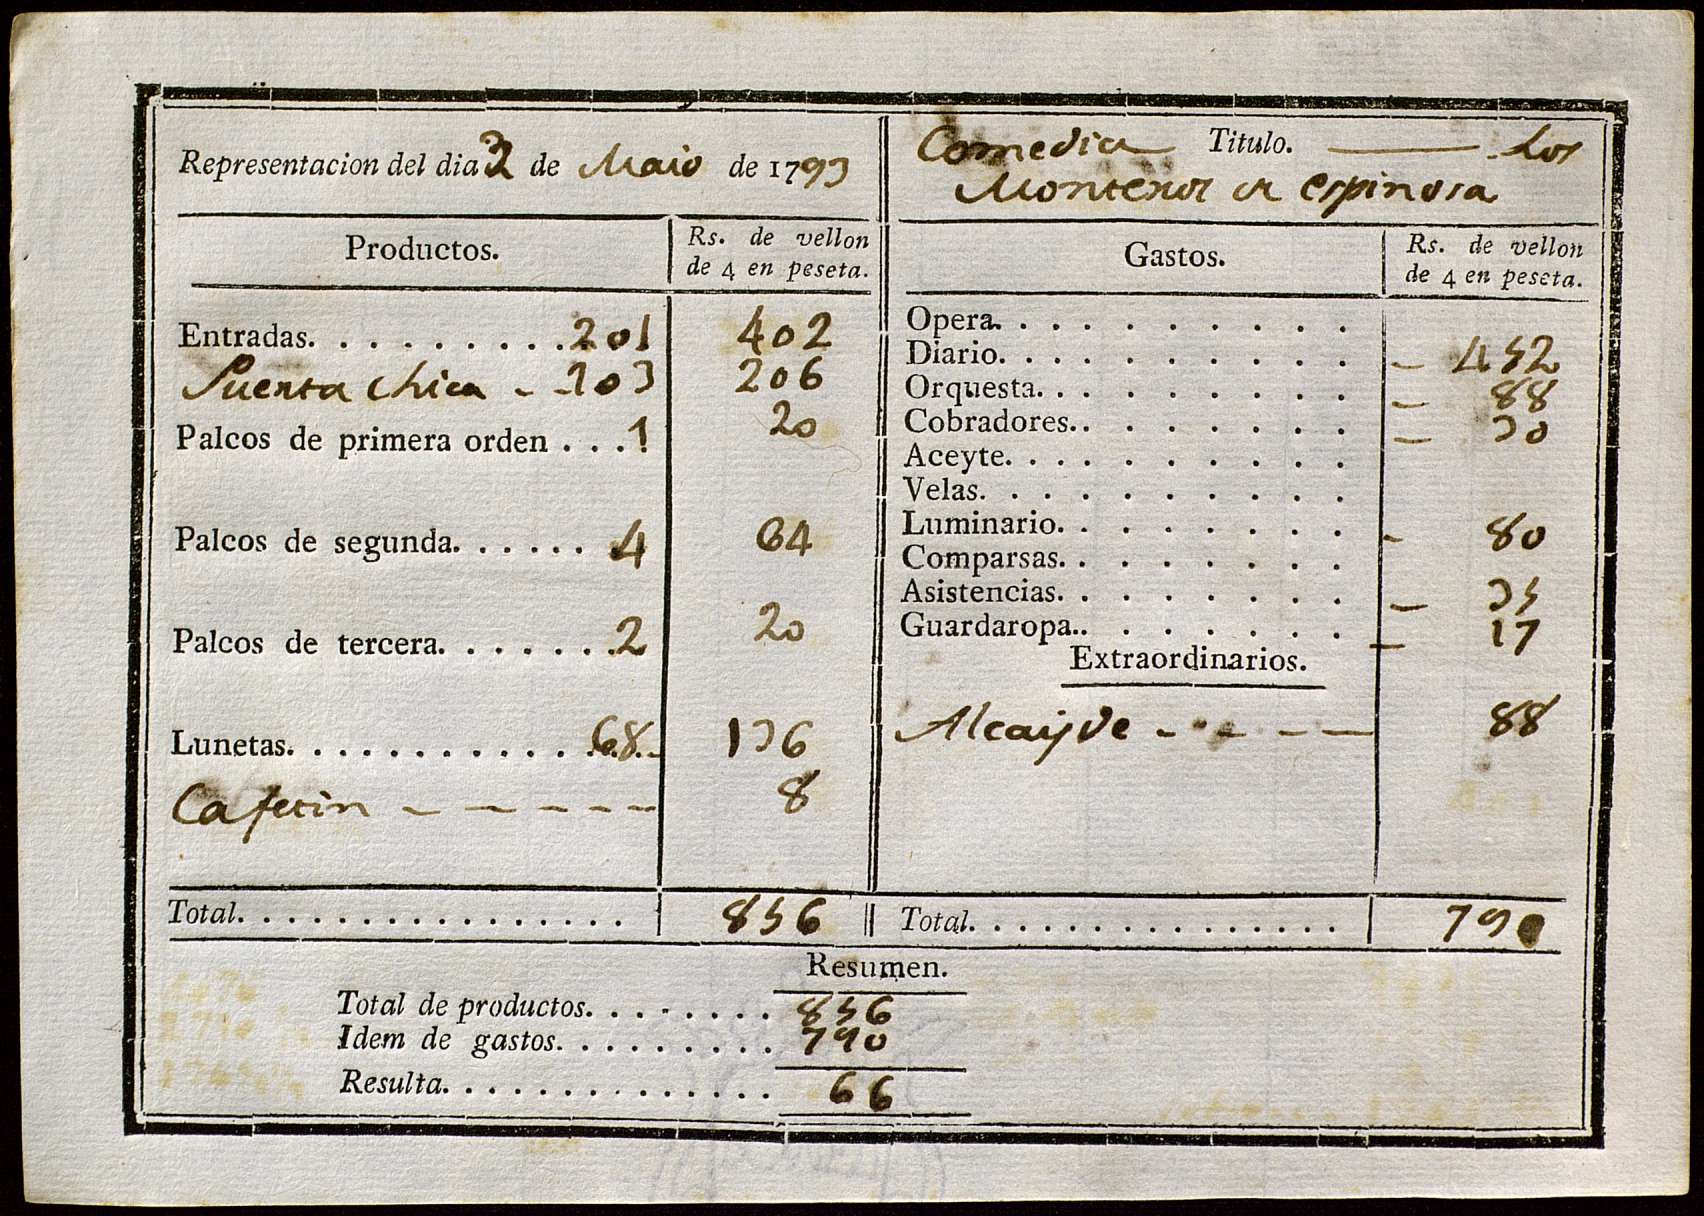 Representacion del dia de Maio de 1793
Comedia Titulo. Los
Monteros de espinosa
Productos. Rs. de vellon
de 4 en peseta.
Entradas. . . . . . . . . . 201 402
Puerta chica - 103 206
Palcos de primera orden . . . 1 20
Palcos de segunda. . . . . . 4 64
Palcos de tercera. . . . . . . 2 20
Lunetas. . . . . . . . . . . . 68 136
Cafetin - - - - - - 8
Total. . . . . . . . . . . . . . . . . 856
Gastos. Rs. de vellon
de 4 en peseta.
Opera. . . . . . . . . .
Diario. . . . . . . . . . - 452
Orquesta. . . . . . . . . - 88
Cobradores. . . . . . . . - 30
Aceyte. . . . . . . . . .
Velas. . . . . . . . . .
Luminario. . . . . . . . - 80
Comparsas. . . . . . . .
Asistencias. . . . . . . . - 35
Guardaropa. . . . . . . . - 17
Extraordinarios.
Alcayde - - - - - 88
Total. . . . . . . . . . . . . . . . 790
Resumen.
Total de productos. . . . . . . . 856
Idem de gastos. . . . . . . . . . 790
Resulta. . . . . . . . . . . . . . . 66